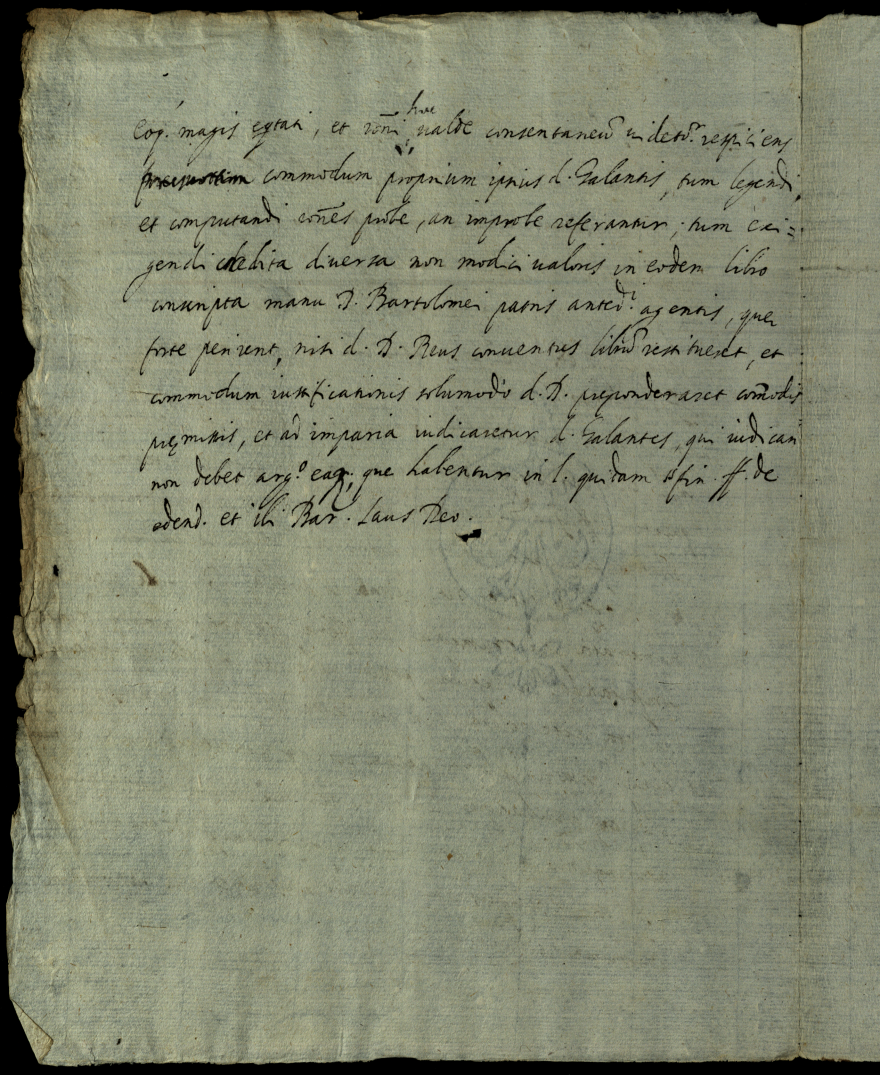 eoq. magis eqtati, et rōni hoc valde consentaneū videtr. respiciens
commodum proprium ipsius d. Galantis, tum legendi,
et computandi cōnes probe, an improbe referantur; tum exi=
gendi credita diversa non modici valoris in eodem libro
conscripta manu D. Bartolomei patris anted.i agentis, que
forte perirent, nisi d. D. Reus conventus librū restitueret, et
commodum iustificationis solumodo d. D. preponderaret com̄odis
pręmissis, et ad imparia iudicaretur d. Galantes, qui iudicari
non debet arg.o eaq; que habentur in l. quidam § fin. ff. de
edend. et ibi Bar. Laus Deo.